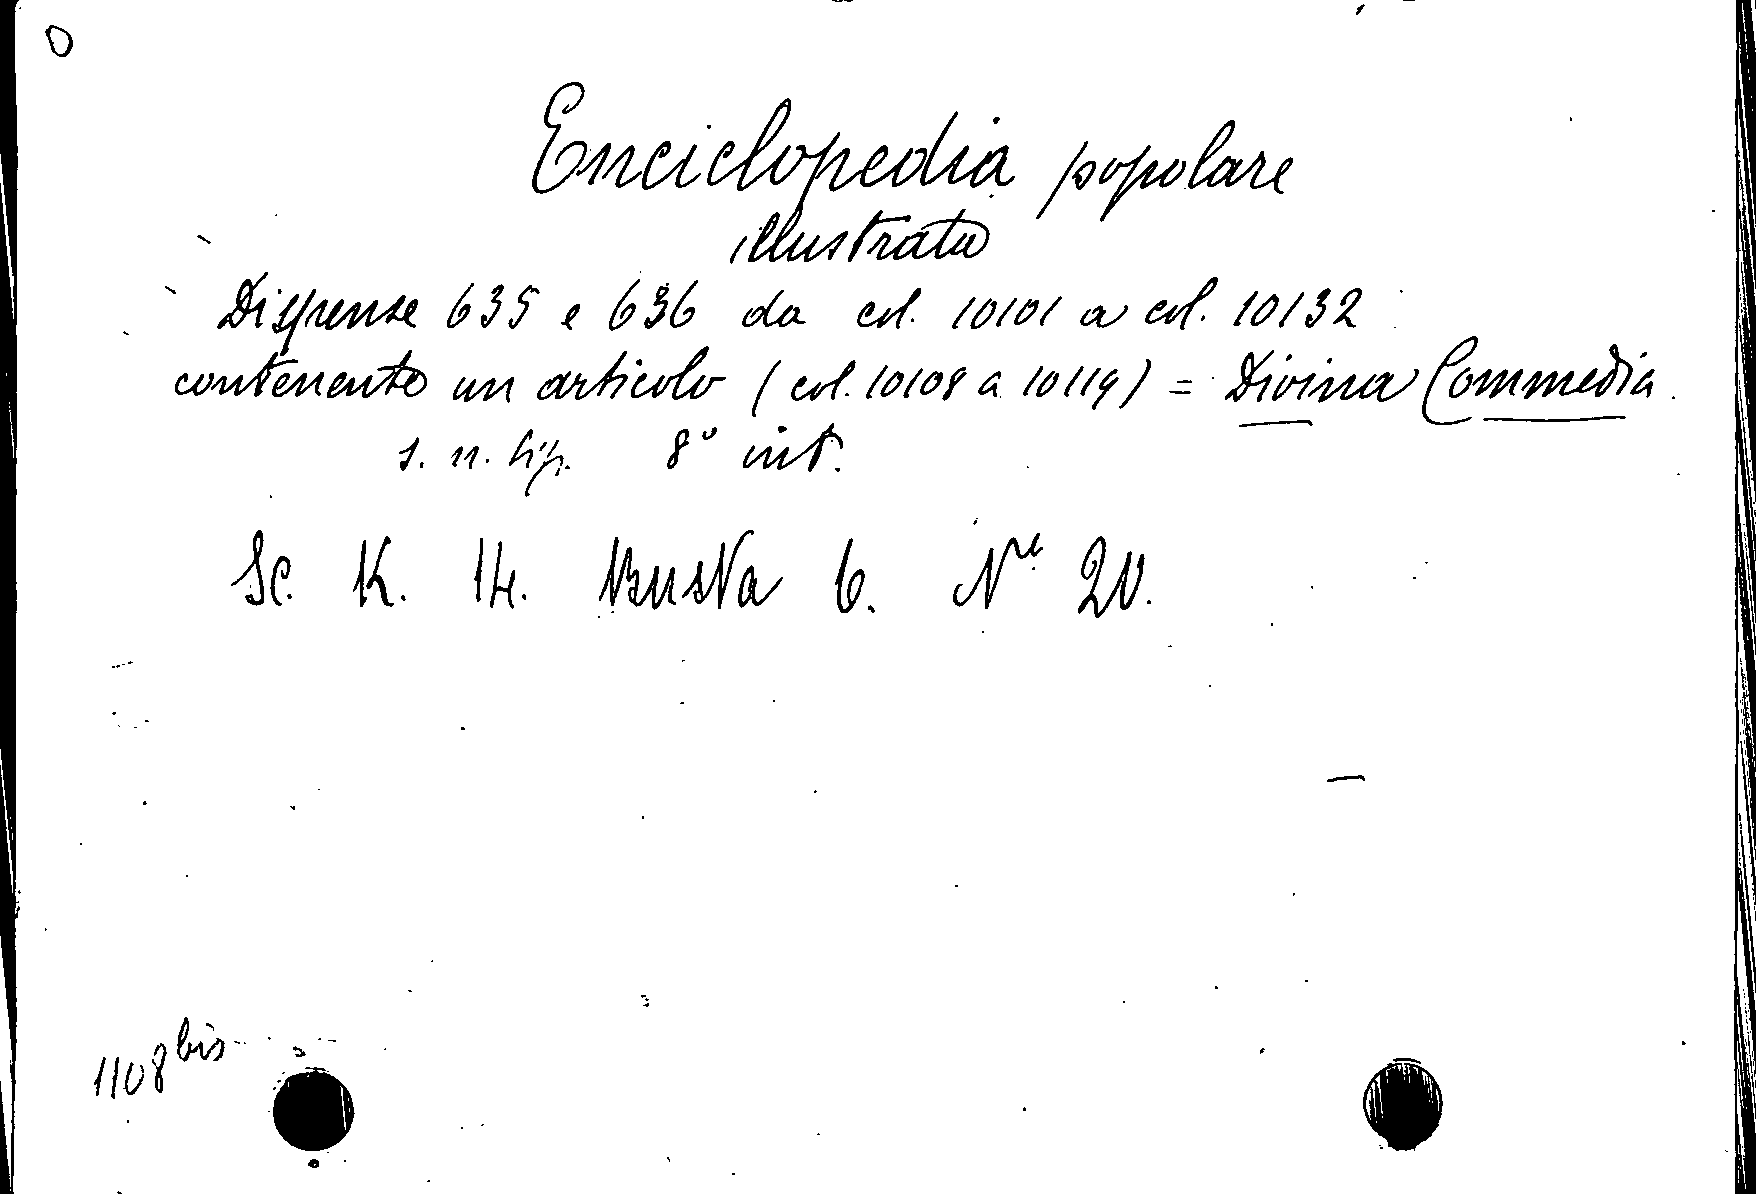 O
Enciclopedia popolare
illustrata
Dispense 635 e 636 da col. 10101 a col. 10132
contenente un articolo (col. 10108 a 10119) = Divina Commedia.
s. n. tip. 8° int.
Sc. K. 14. Busta 6. N° 20.
1108 bis